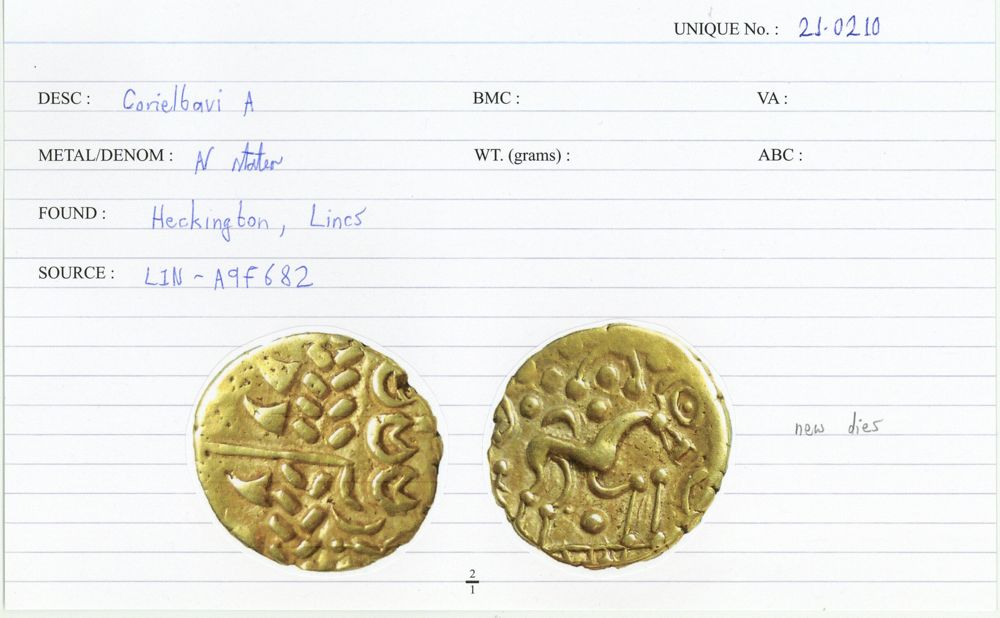 UNIQUE No. : 21.0210
DESC : Corieltavi A BMC : VA :
METAL/DENOM : N stater WT. (grams) : ABC :
FOUND : Heckington, Lincs
SOURCE : LIN - A9F682
new dies
2
1